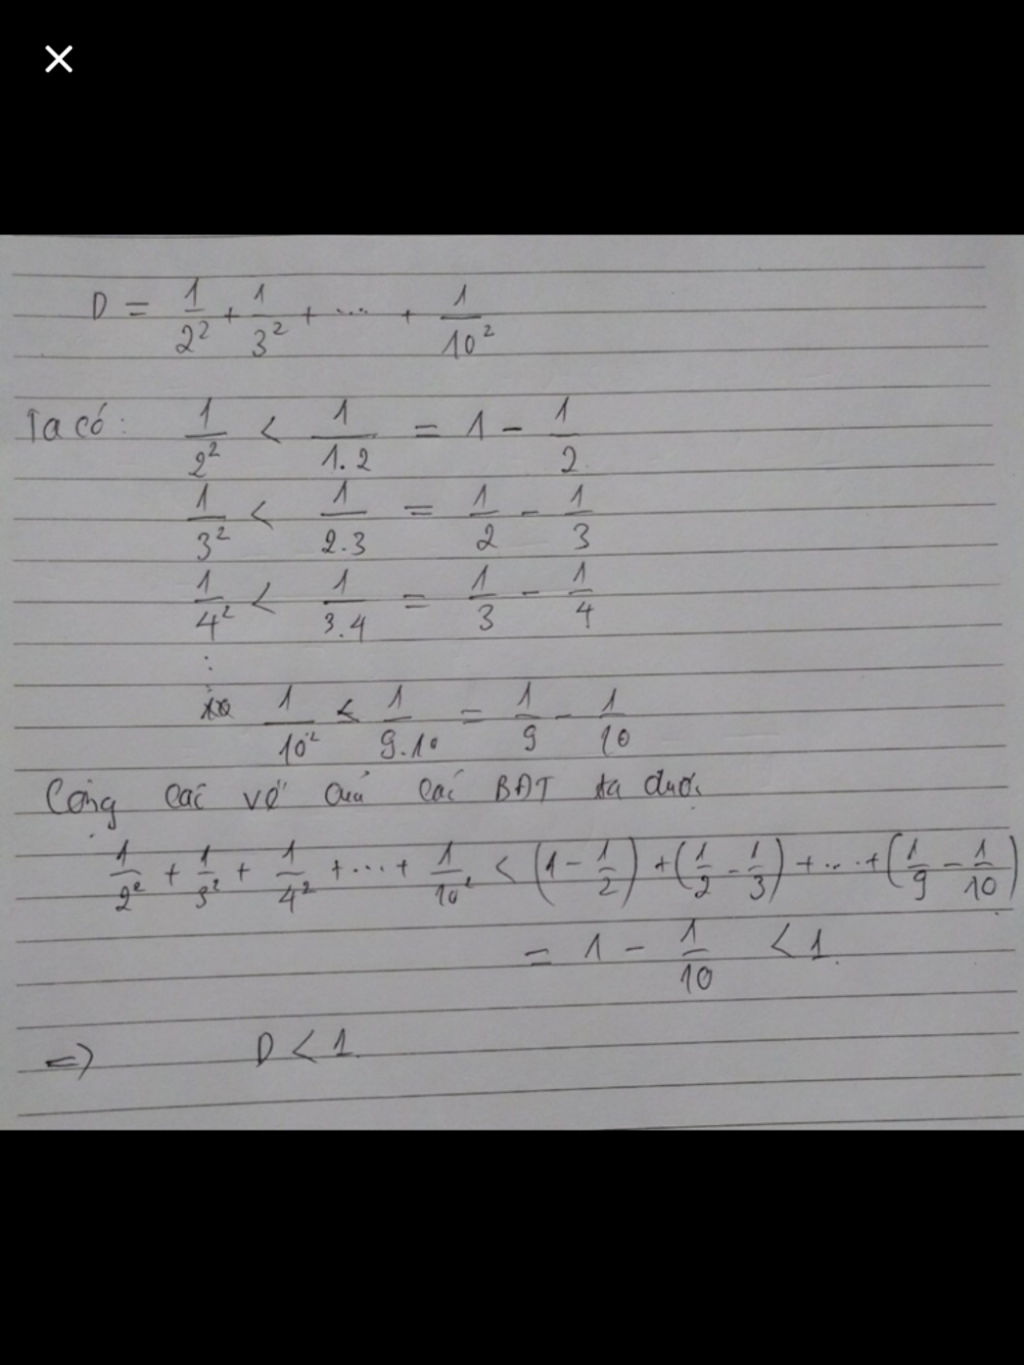 D = 1/2² + 1/3² + ... + 1/10²
Ta có: 1/2² < 1/1.2 = 1 - 1/2
1/3² < 1/2.3 = 1/2 - 1/3
1/4² < 1/3.4 = 1/3 - 1/4
⋮
1/10² < 1/9.10 = 1/9 - 1/10
Cộng các vế của các BĐT ta được
1/2² + 1/3² + 1/4² + ... + 1/10² < (1 - 1/2) + (1/2 - 1/3) + ... + (1/9 - 1/10)
= 1 - 1/10 < 1.
=> D < 1.